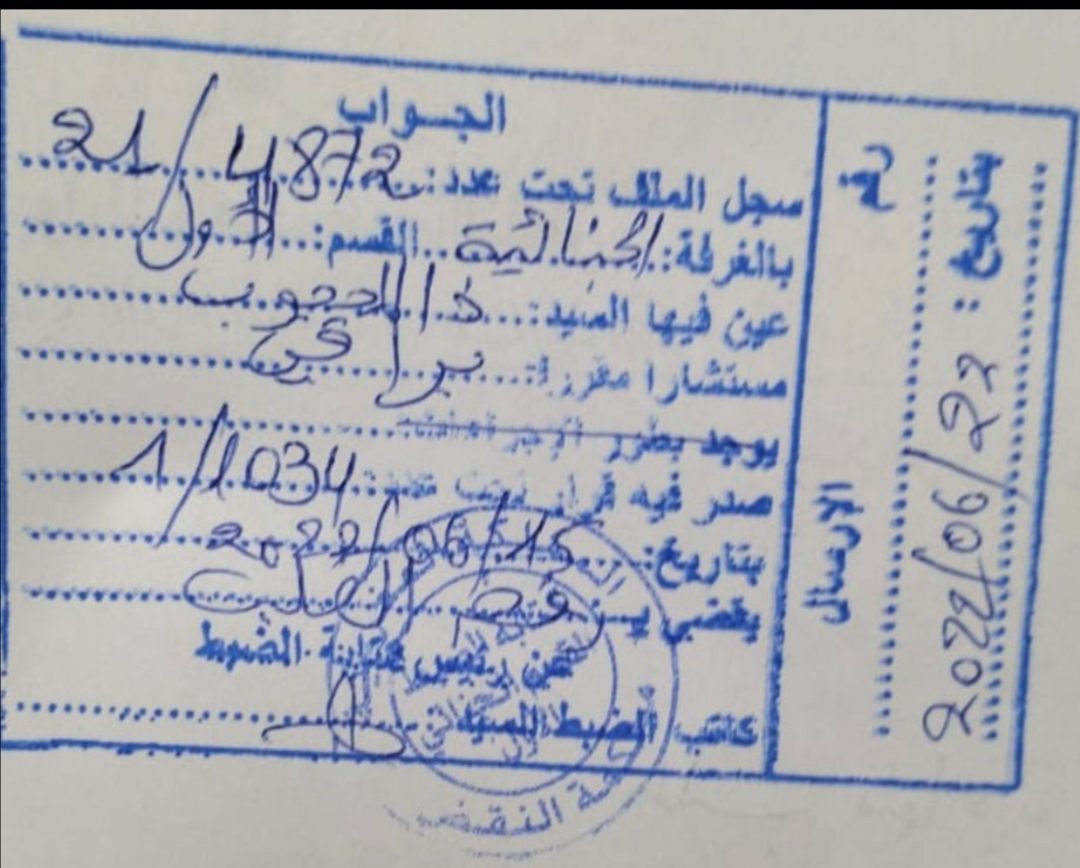 الجواب
سجل الملف تحت عدد: 21/4872
بالغرفة: الجنائية القسم: الأول
عين فيها السيد:
مستشارا مقررا:
يوجد بطور الإجراءات:
صدر فيه قرار تحت عدد: 1/1034
بتاريخ: 2022/06/15
يقضي بـ: رفض الطلب
عن رئيس كتابة الضبط
كاتب الضبط السيد
محكمة النقض
رقم
الإرسال
بتاريخ: 2022/06/22